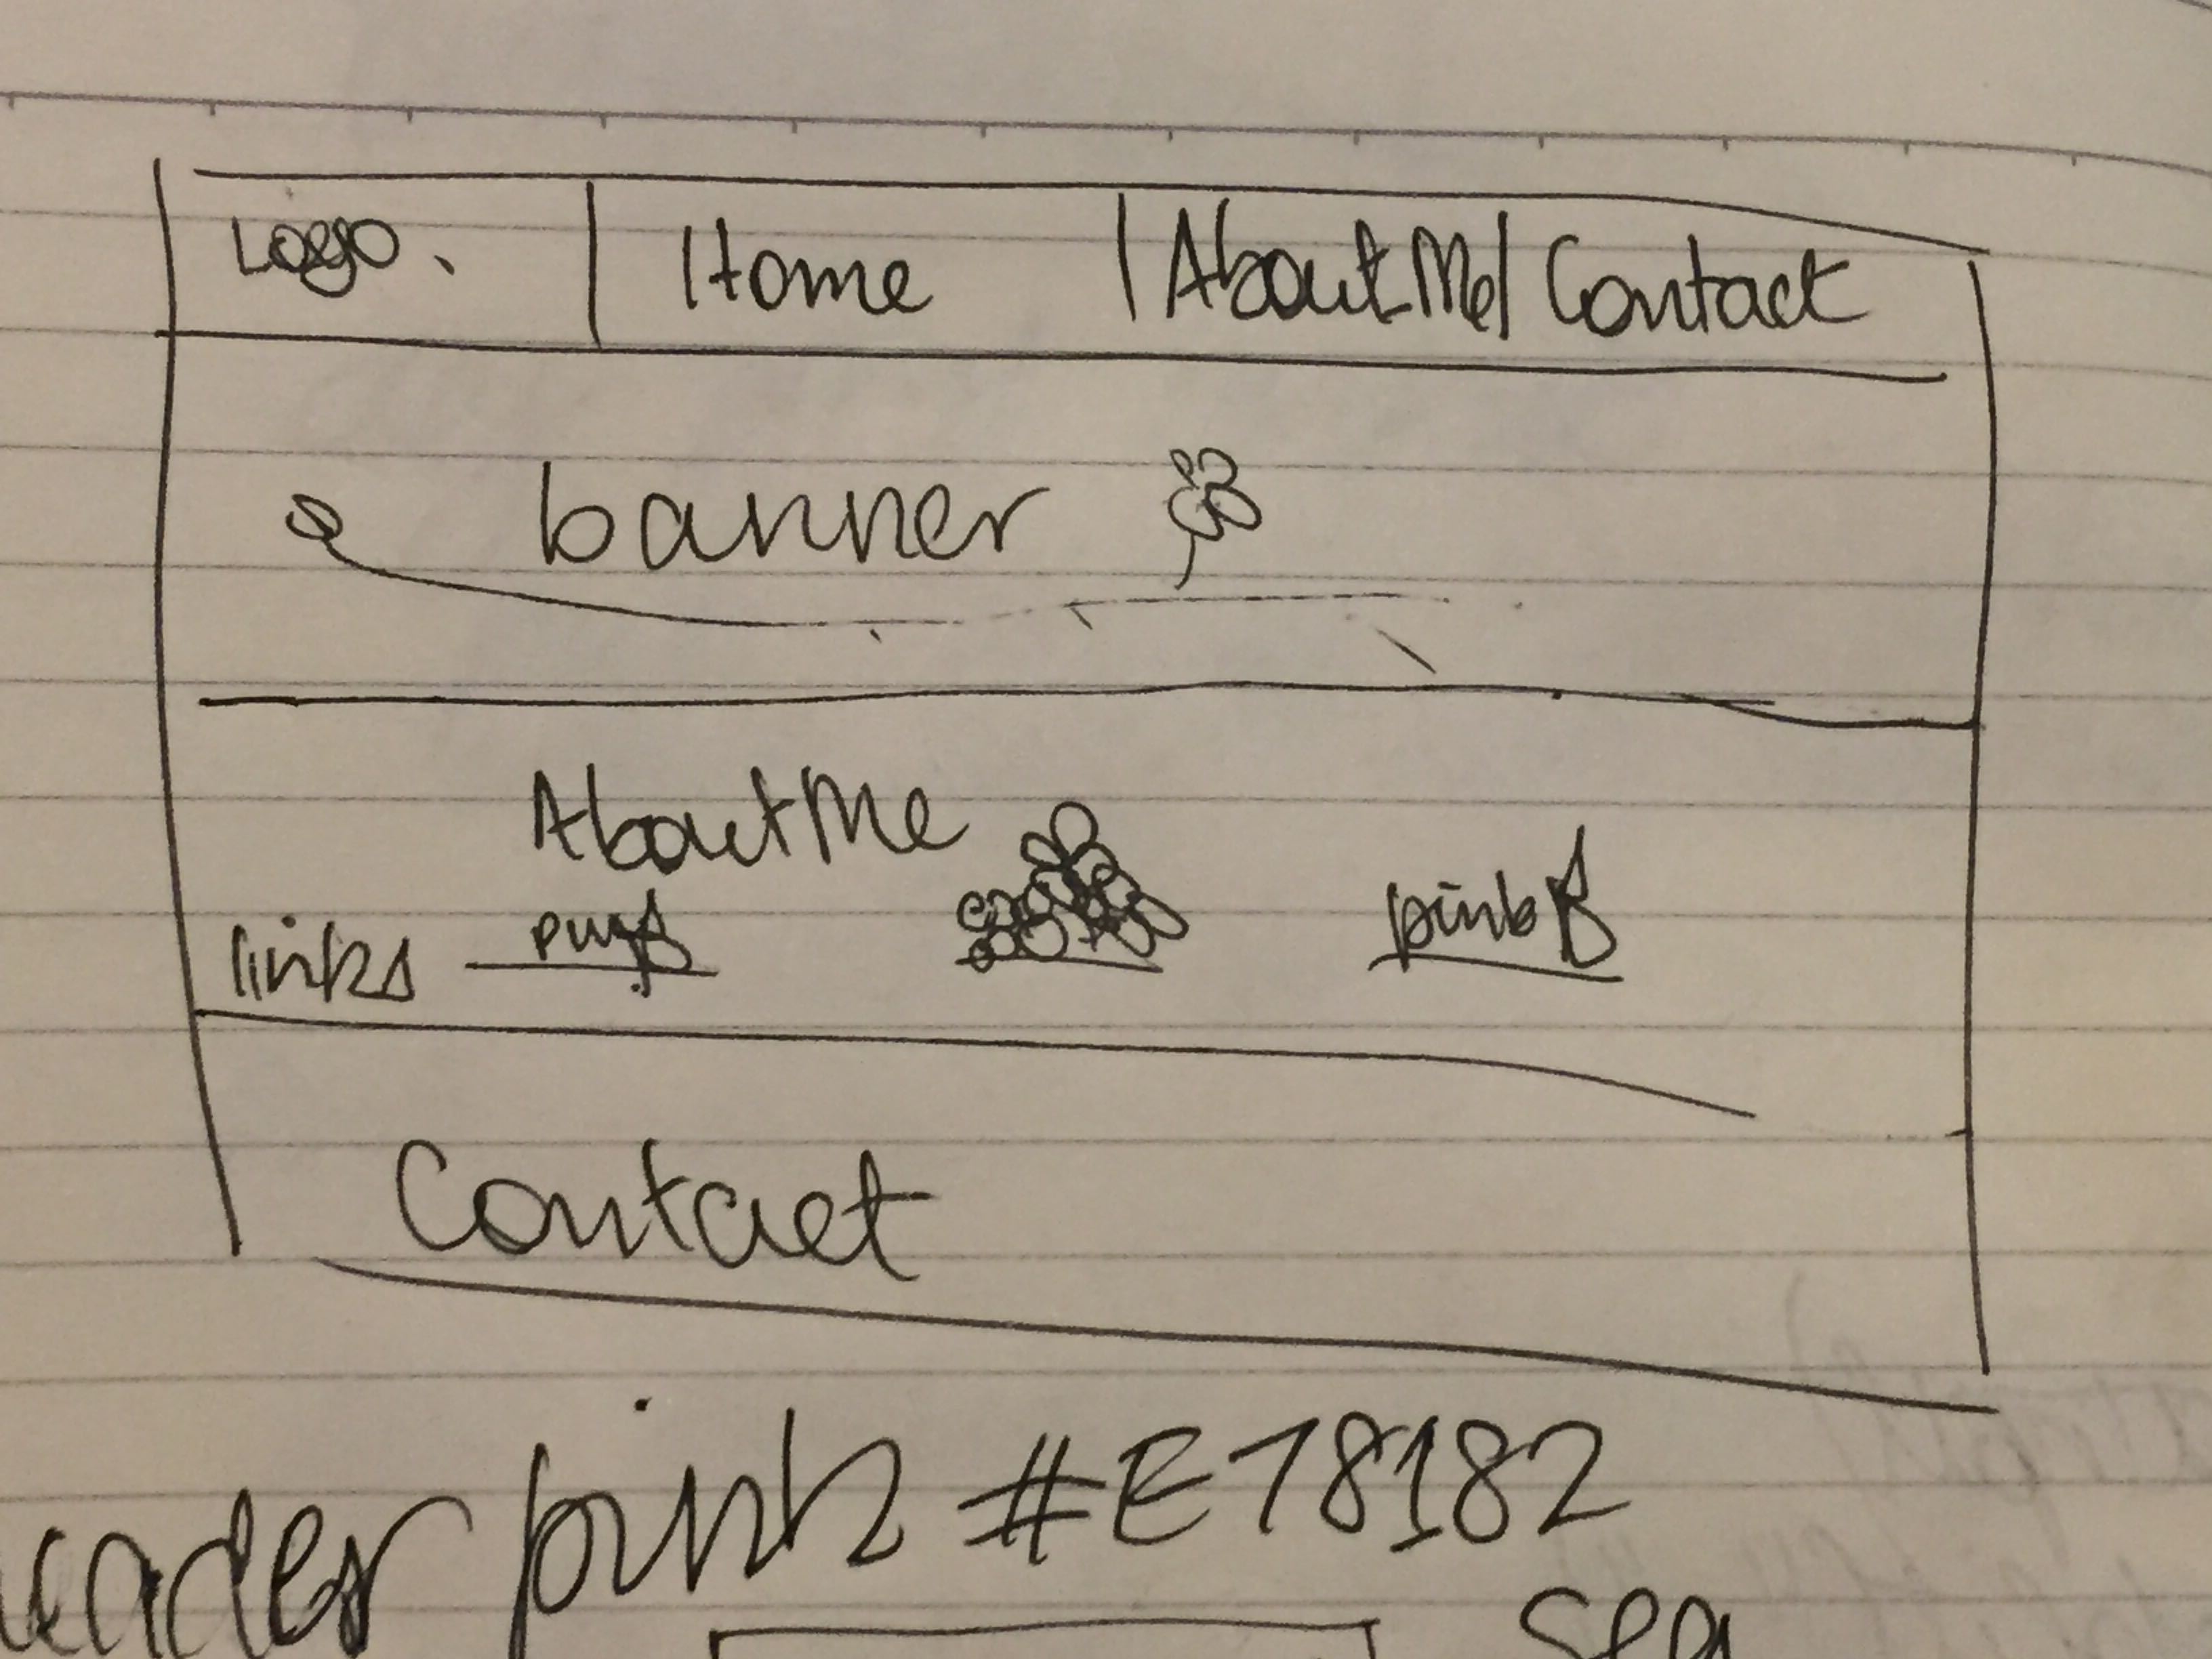 Logo. | Home | About Me | Contact
banner
About Me
links
Contact
pink #E78182